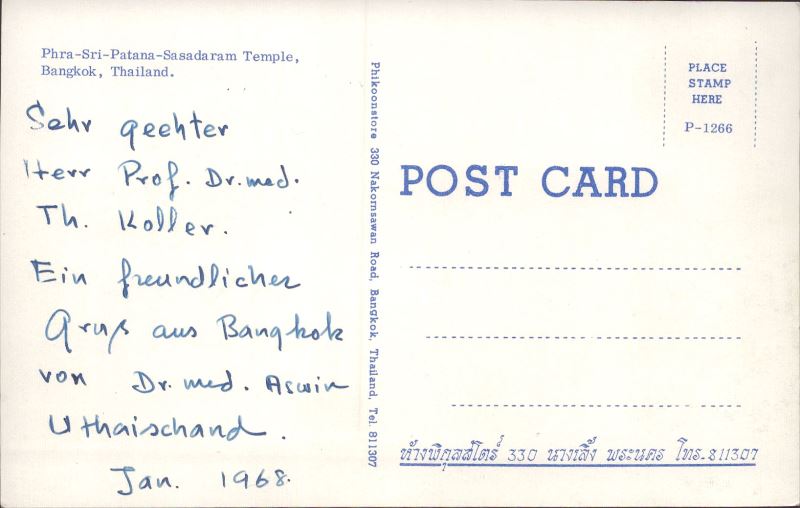 Phra-Sri-Patana-Sasadaram Temple,
Bangkok, Thailand.
Sehr geehter
Herr Prof. Dr. med.
Th. Koller.
Ein freundlicher
Gruß aus Bangkok
von Dr. med. Aswin
Uthaischand.
Jan. 1968.
Phikoonstore 330 Nakornsawan Road, Bangkok, Thailand, Tel. 811307
PLACE
STAMP
HERE
P-1266
POST CARD
ห้างพิกุลสโตร์ 330 นางเลิ้ง พระนคร โทร. 811307